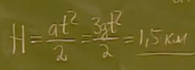 H = at²/2 = 3gt²/2 = 1,5 км